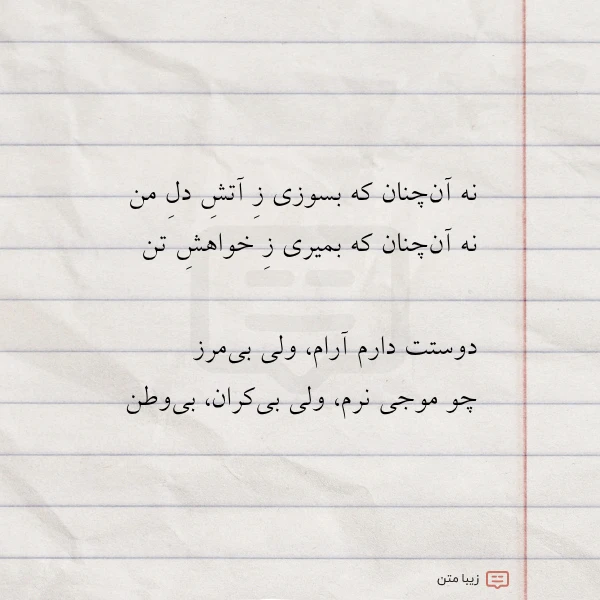 نه آن‌چنان که بسوزی زِ آتشِ دلِ من
نه آن‌چنان که بمیری زِ خواهشِ تن
دوستت دارم آرام، ولی بی‌مرز
چو موجی نرم، ولی بی‌کران، بی‌وطن
زیبا متن